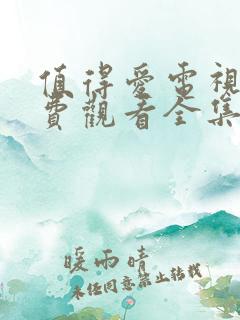 值得愛電視
費觀看全集
暖雨晴
未经同意禁止转载